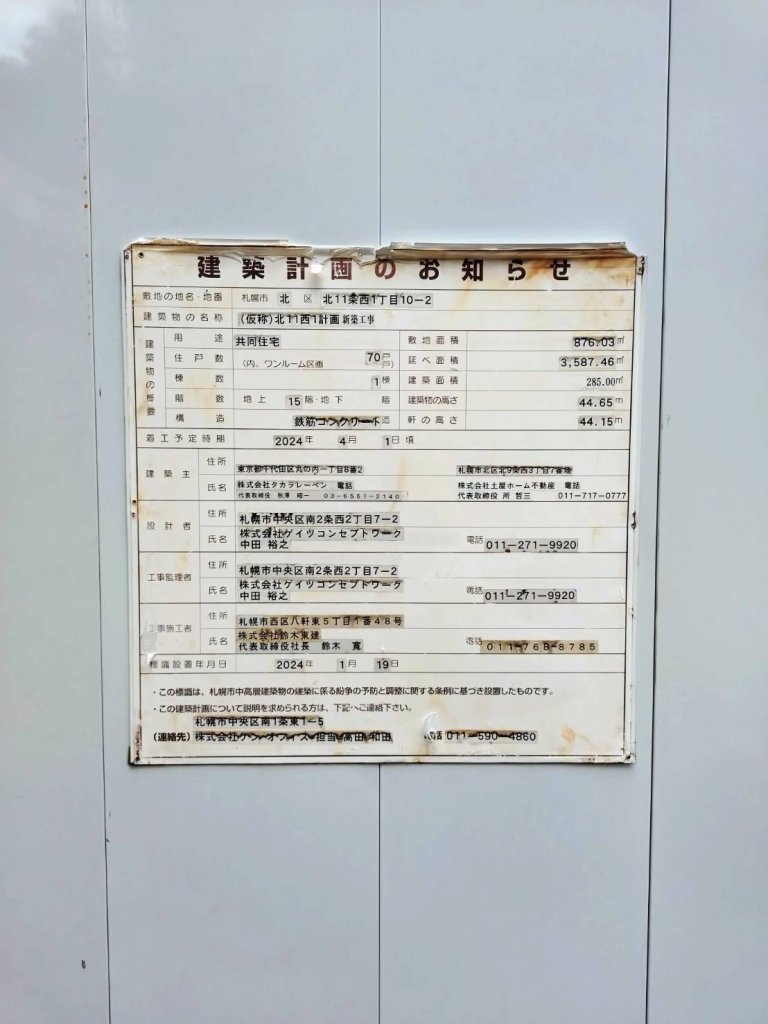 建築計画のお知らせ
敷地の地名・地番 札幌市 北 区 北11条西1丁目10-2
建築物の名称 (仮称)北11西1計画 新築工事
建築物の概要
用途 共同住宅 敷地面積 876.03㎡
住戸数 (内、ワンルーム区画 70戸 戸) 延べ面積 3,587.46㎡
棟数 1棟 建築面積 285.00㎡
階数 地上 15階・地下 階 建築物の高さ 44.65m
構造 鉄筋コンクリート造 軒の高さ 44.15m
着工予定時期 2024年 4月 1日頃
建築主 住所 東京都千代田区丸の内一丁目8番2 札幌市北区北9条西3丁目7番地
氏名 株式会社タカラレーベン 電話 株式会社土屋ホーム不動産 電話
代表取締役 秋澤 昭一 03-6551-2140 代表取締役 所 哲三 011-717-0777
設計者 住所 札幌市中央区南2条西2丁目7-2
氏名 株式会社ゲイツコンセプトワーク
中田 裕之 電話 011-271-9920
工事監理者 住所 札幌市中央区南2条西2丁目7-2
氏名 株式会社ゲイツコンセプトワーク
中田 裕之 電話 011-271-9920
工事施工者 住所 札幌市西区八軒東5丁目1番48号
氏名 株式会社鈴木東建
代表取締役社長 鈴木 寛 電話 011-768-8785
標識設置年月日 2024年 1月 19日
・この標識は、札幌市中高層建築物の建築に係る紛争の予防と調整に関する条例に基づき設置したものです。
・この建築計画について説明を求められる方は、下記へご連絡下さい。
札幌市中央区南1条東1-5
(連絡先) 株式会社ケン・オフィス 担当 高田・和田 電話 011-590-4860